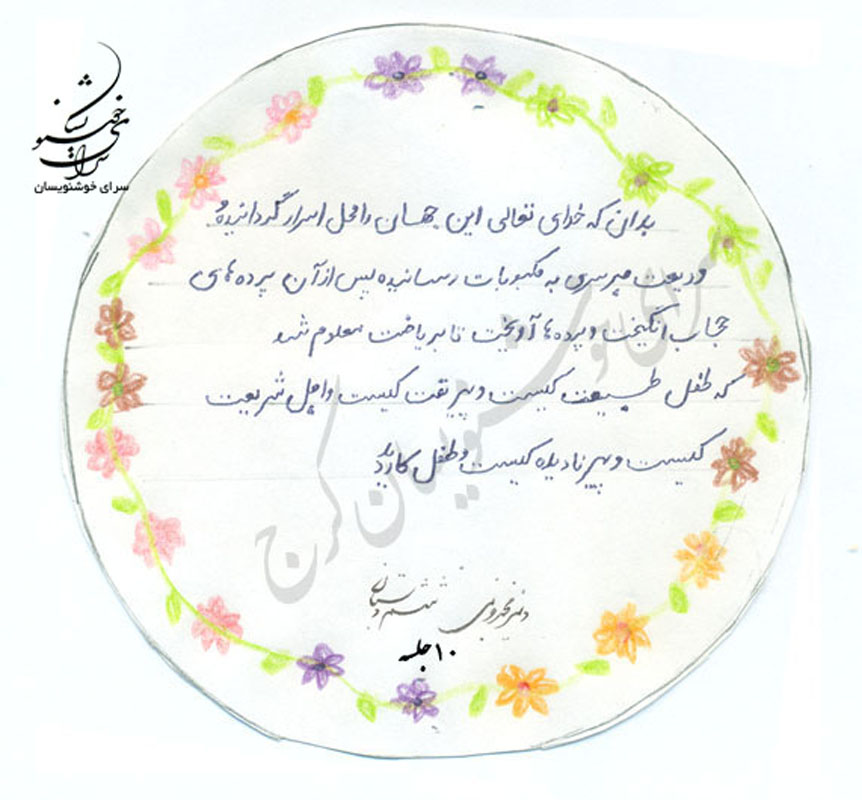 سرای خوشنویسان
سرای خوشنویسان
بدان که خدای تعالی این جهان را محل اسرار گردانیده
ودیعت هر سری به مکتوبات رسانیده پس از آن پرده‌های
حجاب انگیخت و پرده‌ها آویخت تا بریاضت معلوم شود
که طفل طبیعت کیست و پیر کیست و اهل شریعت
کیست و پیر نادیده کیست و طفل کاردیده
ششم دبستان
۱۰ جلسه
سرای خوشنویسان کرج